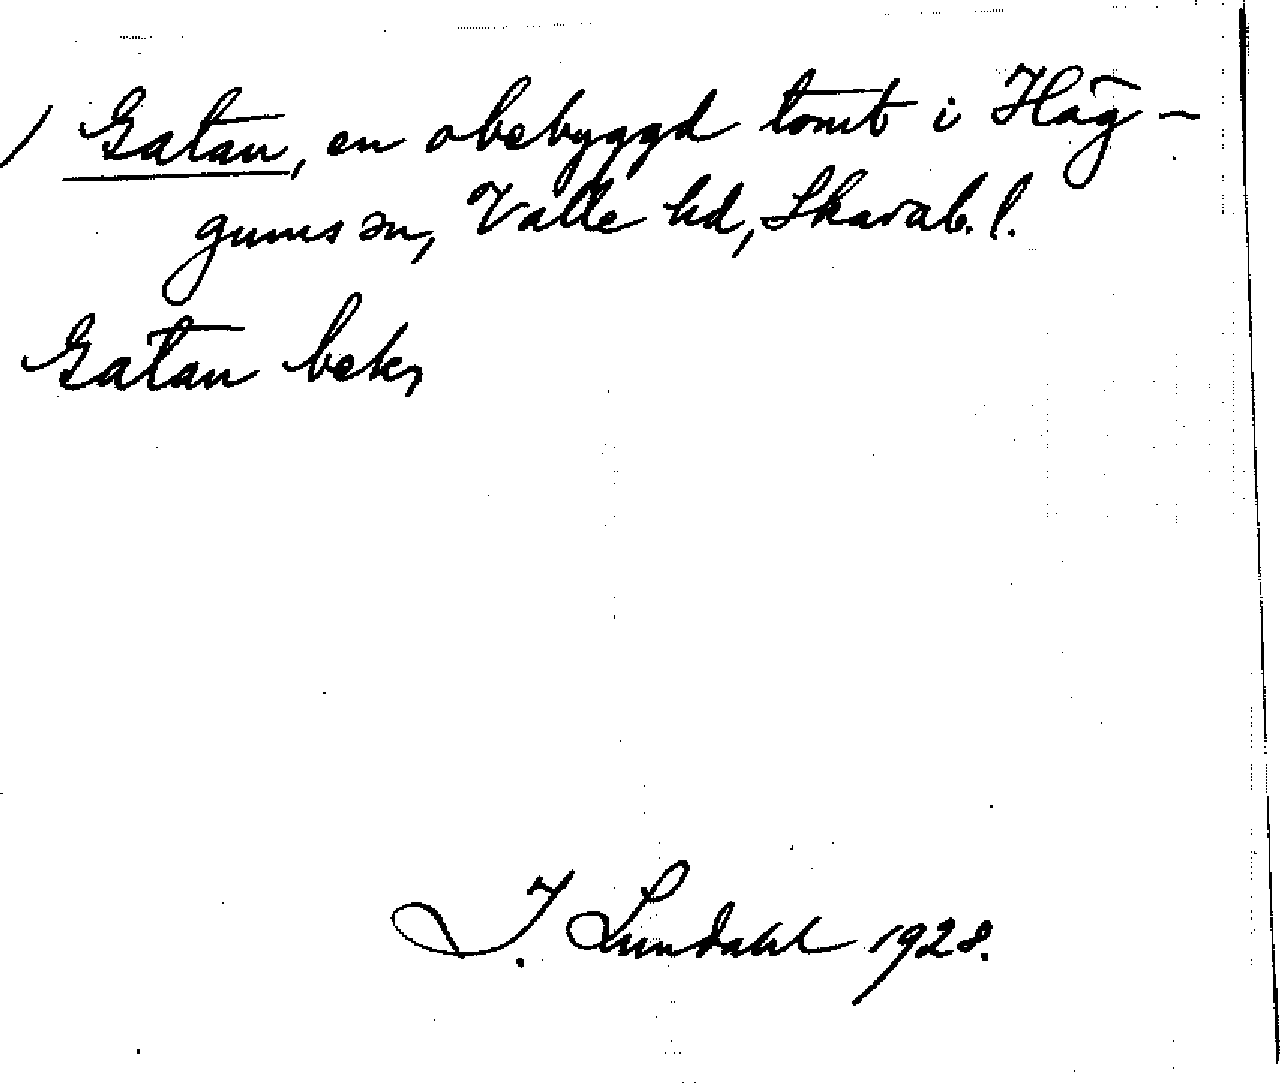 / Gatan, en obebyggd tomt i Häg-
gums sn, Valle hd, Skarab. l.
Gatan bek,
I. Lundahl 1928.